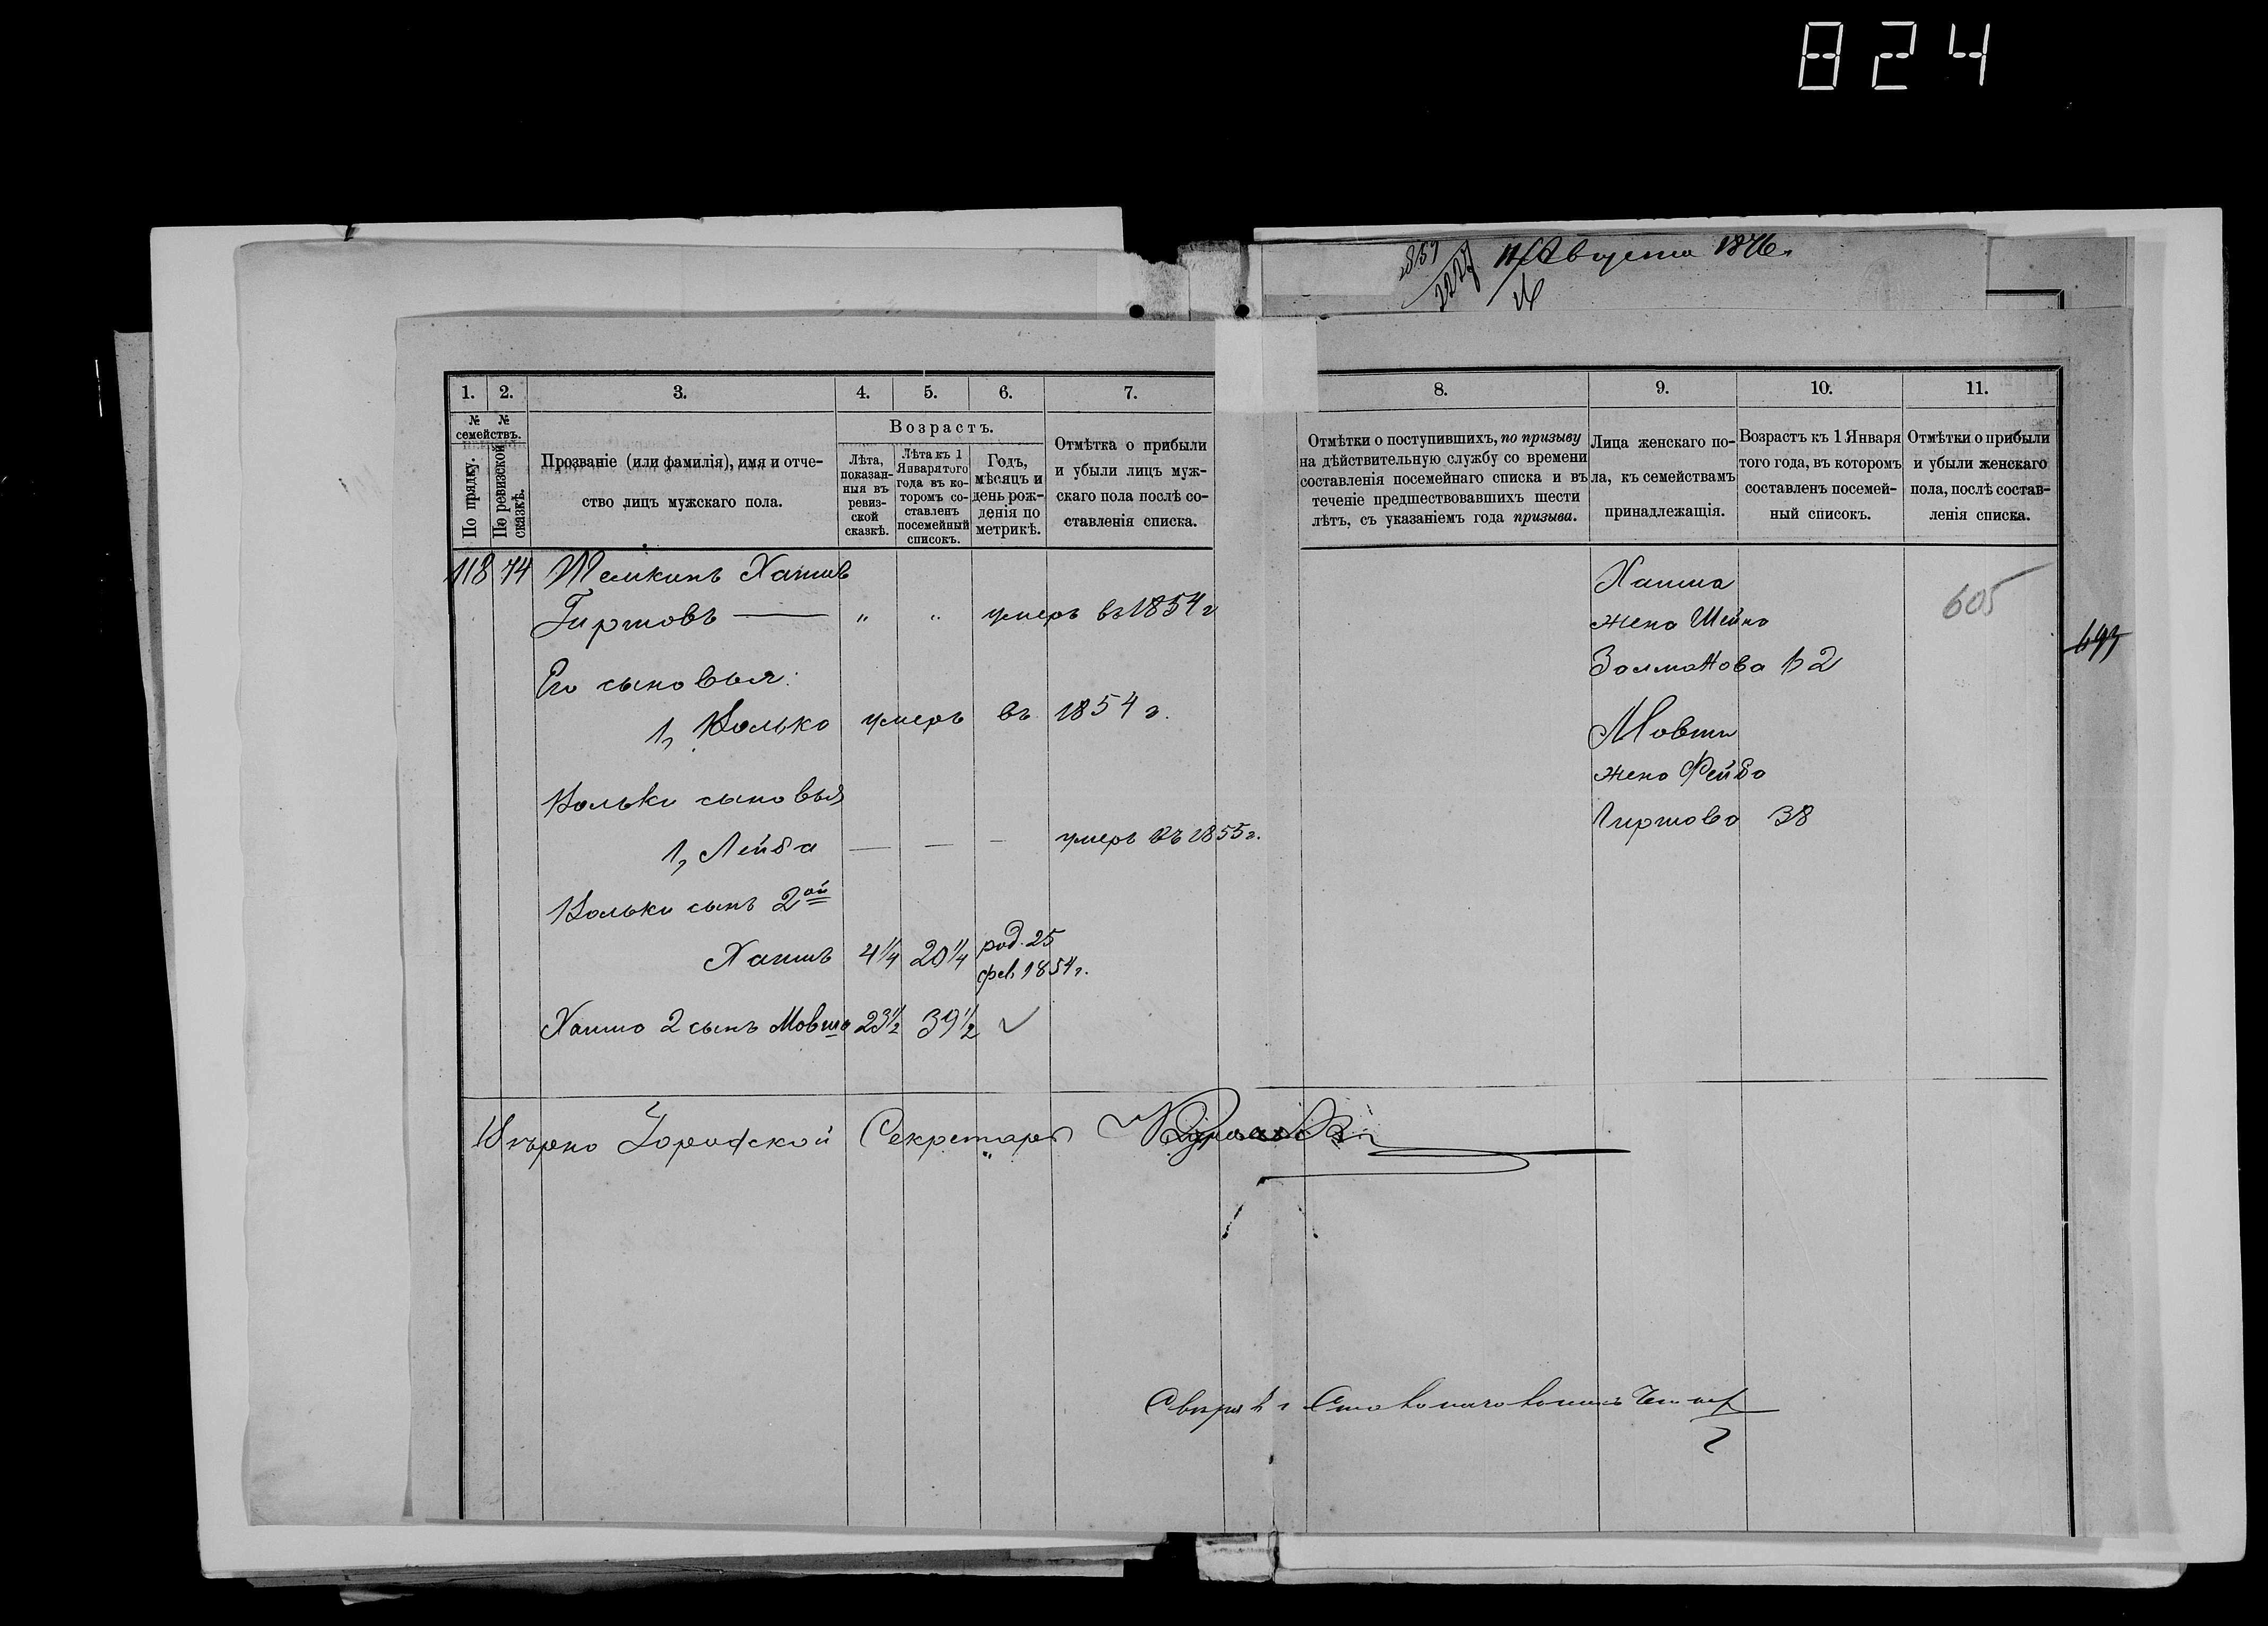 824
2227
11 Августа 1876.
1. 2. 3. 4. 5. 6. 7. 8. 9. 10. 11.
№ № семействъ.
По прядку.
По ревизской сказкѣ.
Прозваніе (или фамилія), имя и отче-
ство лицъ мужскаго пола.
Возрастъ.
Лѣта, показан-ныя въ ревиз-ской сказкѣ.
Лѣта къ 1 Января того года въ ко-торомъ со-ставленъ посемейный списокъ.
Годъ, мѣсяцъ и день рож-денія по метрикѣ.
Отмѣтка о прибыли
и убыли лицъ муж-
скаго пола послѣ со-
ставленія списка.
Отмѣтки о поступившихъ, по призыву
на дѣйствительную службу со времени
составленія посемейнаго списка и въ
теченіе предшествовавшихъ шести
лѣтъ, съ указаніемъ года призыва.
Лица женскаго по-
ла, къ семействамъ
принадлежащія.
Возрастъ къ 1 Января
того года, въ которомъ
составленъ посемей-
ный списокъ.
Отмѣтки о прибыли
и убыли женскаго
пола, послѣ состав-
ленія списка.
118 74 Хаимъ
Гиршовъ — " " умеръ въ 1854 г
Его сыновья:
1, Волько умеръ въ 1854 г.
Вольки сыновья
1, Лейба — — — умеръ въ 1855 г.
Вольки сынъ 2ой
Хаимъ 4 1/4 20 1/4 род. 25
фев 1854 г.
Хаима 2 сынъ Мовша 23 1/2 39 1/2
Хаима
жена Шейна
Залманова 62
Мовши
жена Фейга
Гиршова 38
605
693
Вѣрно Городской Секретарь
Свѣрялъ